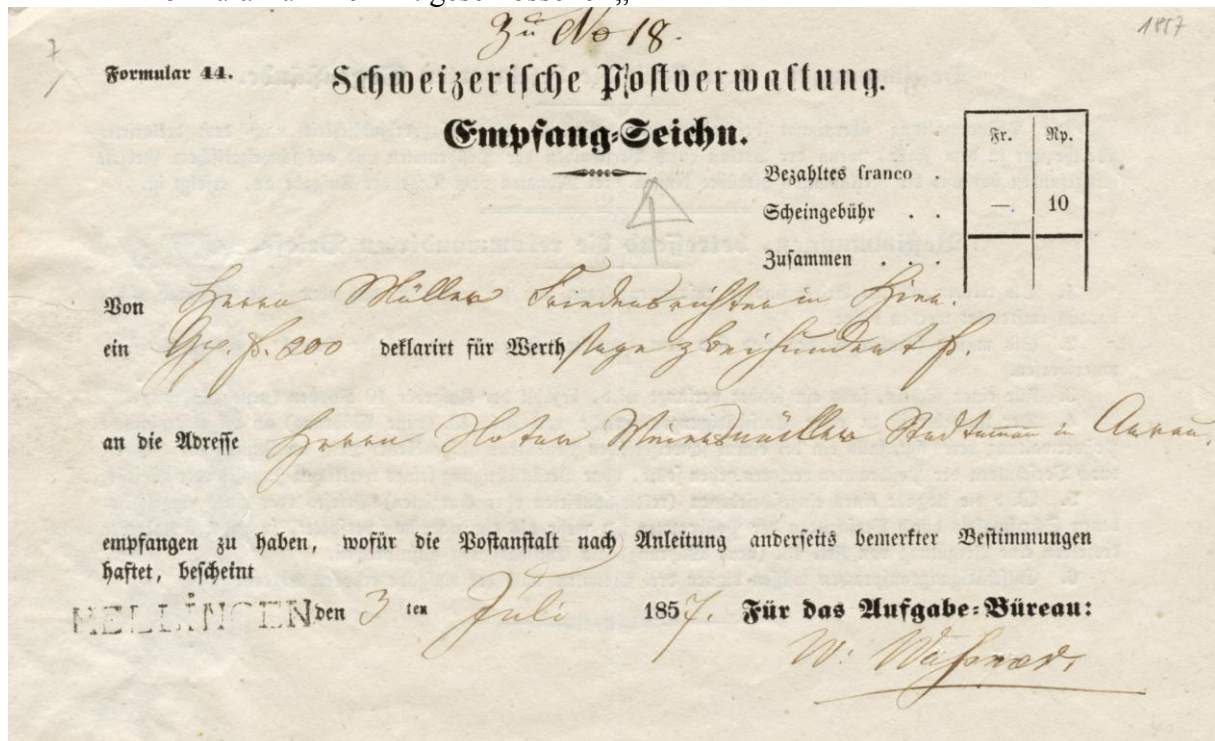 Zu No 18.
1857
7
Formular 44. Schweizerische Postverwaltung.
Empfang=Seichn.
Fr. Rp.
Bezahltes franco .
Scheingebühr . . — 10
Zusammen . . .
Von Herrn Müller Friedensrichter in Hier.
ein Fr. 200 deklarirt für Werth sage zweihundert Fr.
an die Adresse Herrn Notar Weiersmüller Stadtamman in Aarau.
empfangen zu haben, wofür die Postanstalt nach Anleitung anderseits bemerkter Bestimmungen
haftet, bescheint
MELLINGEN den 3 ten Juli 1857. Für das Aufgabe=Büreau:
W.